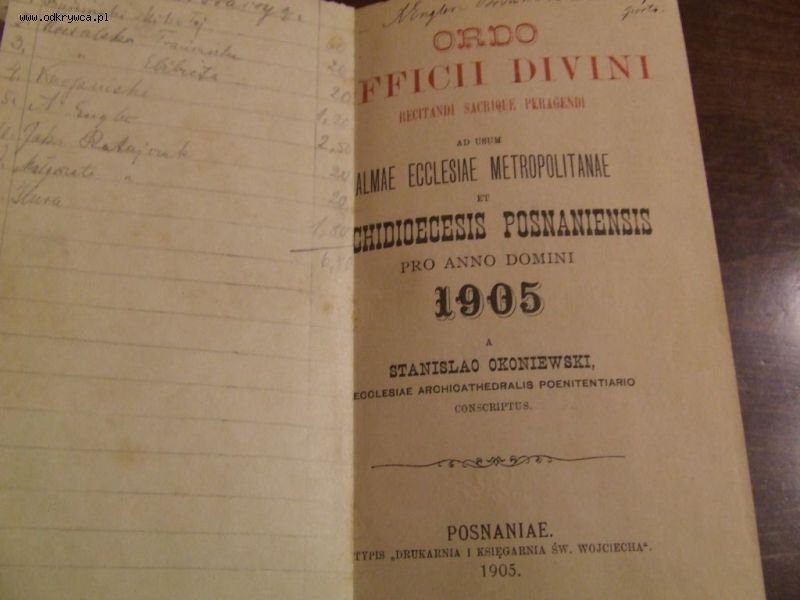 www.odkrywca.pl
60
Kowalska Franciszka 20
3, " Elżbieta 20
4. 1,20
5. A Engler 2,50
Jakó Ratajczak 20
Małgorzata " 20
1,80
A Engler
ORDO
FFICII DIVINI
RECITANDI SACRIQUE PERAGENDI
AD USUM
ALMAE ECCLESIAE METROPOLITANAE
ET
CHIDIOECESIS POSNANIENSIS
PRO ANNO DOMINI
1905
A
STANISLAO OKONIEWSKI,
ECCLESIAE ARCHICATHEDRALIS POENITENTIARIO
CONSCRIPTUS.
POSNANIAE.
TYPIS „DRUKARNIA I KSIĘGARNIA ŚW. WOJCIECHA“.
1905.